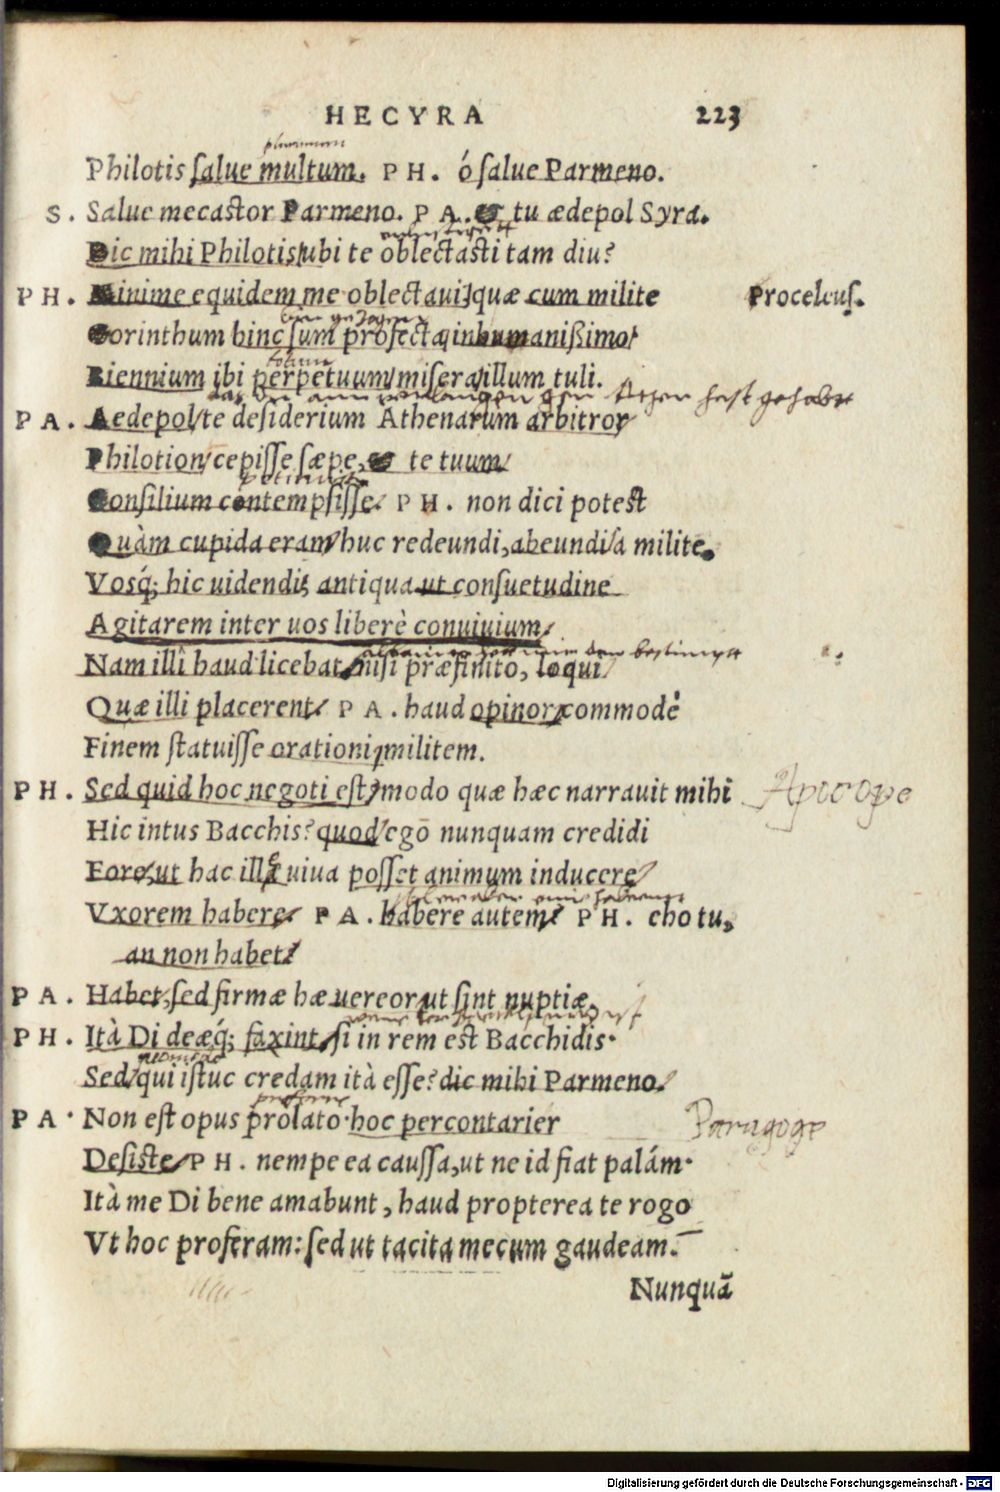 HECYRA 223
plurimum
Philotis ſalue multum. PH. ó ſalue Parmeno.
S. Salue mecastor Parmeno. PA. & tu ædepol Syra.
Dic mihi Philotis ubi te oblectasti tam diu?
PH. Minime equidem me oblectaui, quæ cum milite Proceleuſ.
Corinthum hinc ſum profecta inhumanißimo
Biennium ibi perpetuum miſera illum tuli.
PA. Aedepol te deſiderium Athenarum arbitror
Philotion cepiſſe ſæpe, & te tuum
Conſilium contempſiſſe. PH. non dici potest
Quàm cupida eram huc redeundi, abeundi à milite.
Vosq́; hic uidendi, antiqua ut conſuetudine
Agitarem inter uos liberè conuiuium.
Nam illi haud licebat niſi præfinito, loqui
Quæ illi placerent. PA. haud opinor commodè
Finem ſtatuiſſe orationi militem.
PH. Sed quid hoc negoti eſt, modo quæ hæc narrauit mihi Apocope
Hic intus Bacchis? quod ego nunquam credidi
Fore, ut hac illa uiua poſſet animum inducere
Vxorem habere. PA. habere autem? PH. eho tu,
an non habet?
PA. Habet, ſed firmæ hæ uereor ut ſint nuptiæ.
PH. Ità Di deæq́; faxint, ſi in rem est Bacchidis.
quomodo
Sed qui iſtuc credam ità eſſe? dic mihi Parmeno.
proferre
PA. Non eſt opus prolato. hoc percontarier Paragoge
Deſiſte. PH. nempe ea cauſſa, ut ne id fiat palám.
Ità me Di bene amabunt, haud propterea te rogo
Vt hoc proferam: ſed ut tacita mecum gaudeam.
Nunquã
Digitalisierung gefördert durch die Deutsche Forschungsgemeinschaft - DFG